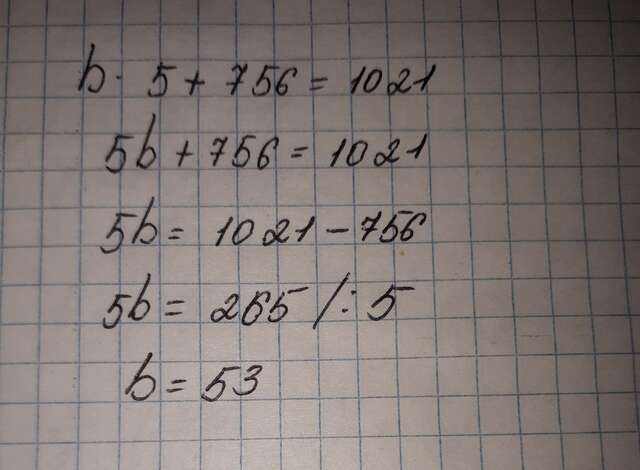 b · 5 + 756 = 1021
5b + 756 = 1021
5b = 1021 - 756
5b = 265 /: 5
b = 53